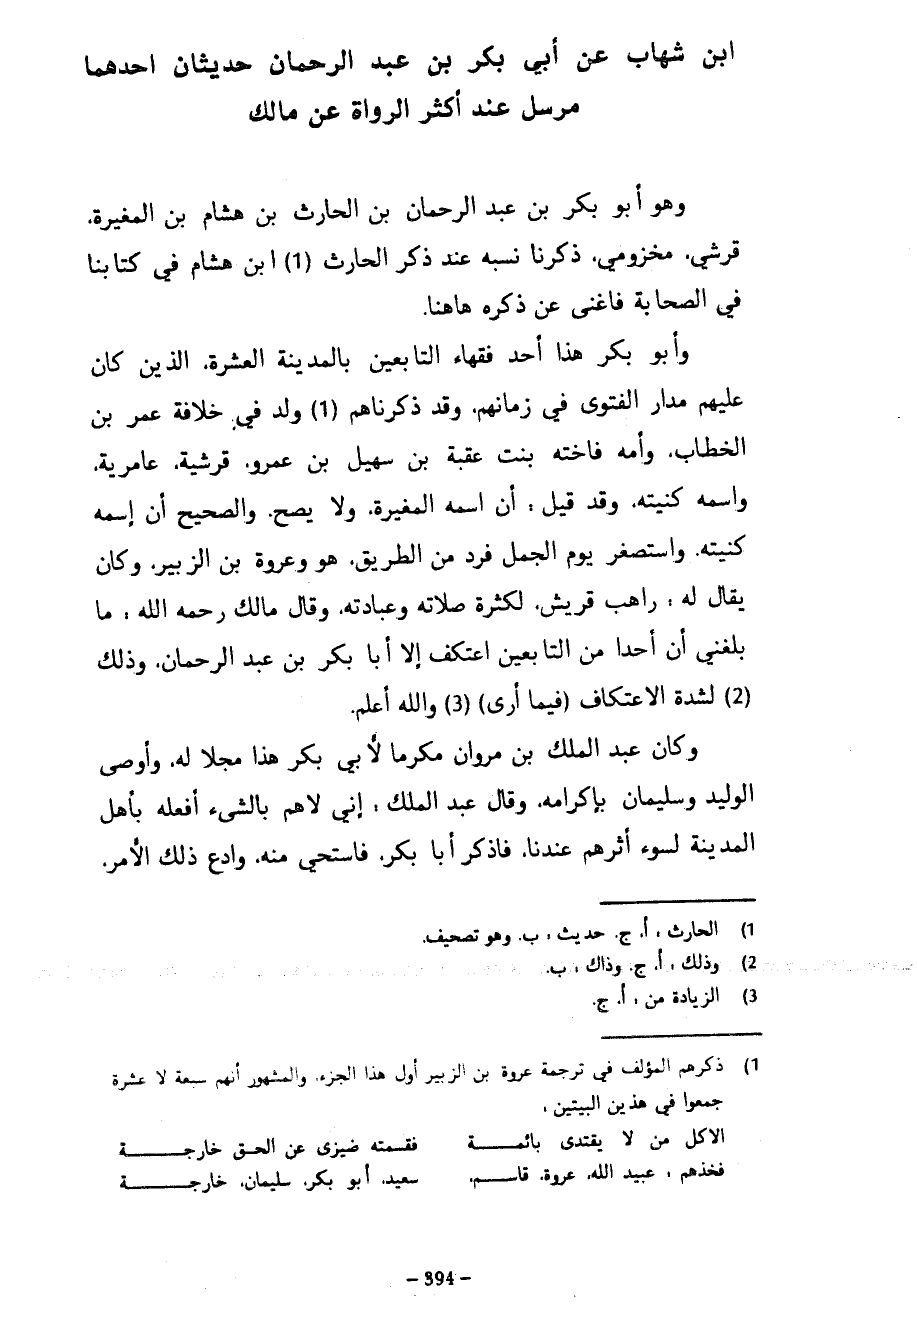 ابن شهاب عن أبي بكر بن عبد الرحمان حديثان احدهما
مرسل عند أكثر الرواة عن مالك
وهو أبو بكر بن عبد الرحمان بن الحارث بن هشام بن المغيرة.
قرشي، مخزومي، ذكرنا نسبه عند ذكر الحارث (1) ابن هشام في كتابنا
في الصحابة فاغنى عن ذكره هاهنا.
وأبو بكر هذا أحد فقهاء التابعين بالمدينة العشرة، الذين كان
عليهم مدار الفتوى في زمانهم، وقد ذكرناهم (1) ولد في خلافة عمر بن
الخطاب، وأمه فاخته بنت عقبة بن سهيل بن عمرو، قرشية، عامرية،
واسمه كنيته، وقد قيل : أن اسمه المغيرة، ولا يصح، والصحيح أن إسمه
كنيته، واستصغر يوم الجمل فرد من الطريق، هو وعروة بن الزبير، وكان
يقال له : راهب قريش، لكثرة صلاته وعبادته، وقال مالك رحمه الله : ما
بلغني أن أحدا من التابعين اعتكف إلا أبا بكر بن عبد الرحمان، وذلك
(2) لشدة الاعتكاف (فيما أرى) (3) والله أعلم.
وكان عبد الملك بن مروان مكرما لأبي بكر هذا مجلا له، وأوصى
الوليد وسليمان بإكرامه، وقال عبد الملك : إني لاهم بالشيء أفعله بأهل
المدينة لسوء أثرهم عندنا، فاذكر أبا بكر، فاستحي منه، وادع ذلك الأمر.
1) الحارث : أ، ج. حديث : ب. وهو تصحيف.
2) وذلك : أ، ج. وذاك : ب.
3) الزيادة من : أ، ج.
1) ذكرهم المؤلف في ترجمة عروة بن الزبير أول هذا الجزء، والمشهور أنهم سبعة لا عشرة
جمعوا في هذين البيتين :
الاكل من لا يقتدى بائمــــة فقسمته ضيزى عن الحق خارجــــة
فخذهم : عبيد الله، عروة، قاســـم، سعيد، أبو بكر، سليمان، خارجــــة
- 394 -